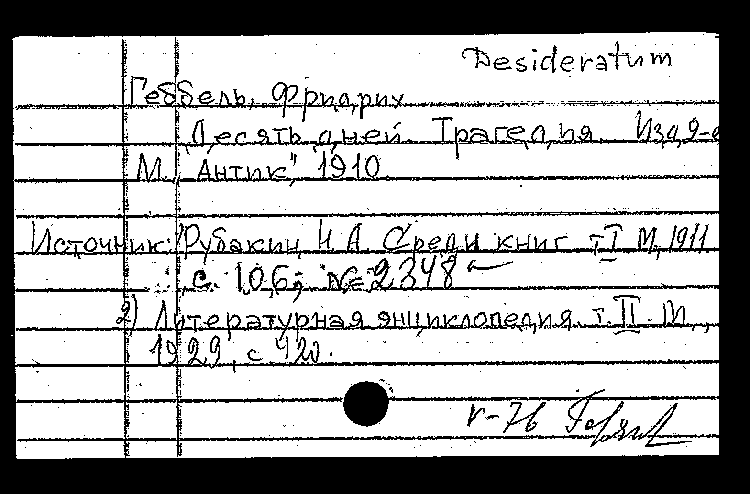 Desideratum
Геббель, Фридрих
Десять дней. Трагедия. Изд. 2-е
М., "Антик", 1910
Источник: Рубакин, Н. А. Среди книг т. I М, 1911
с. 106; № 2348
2) Литературная энциклопедия. т. II. М.,
1929, с 420.
V-76